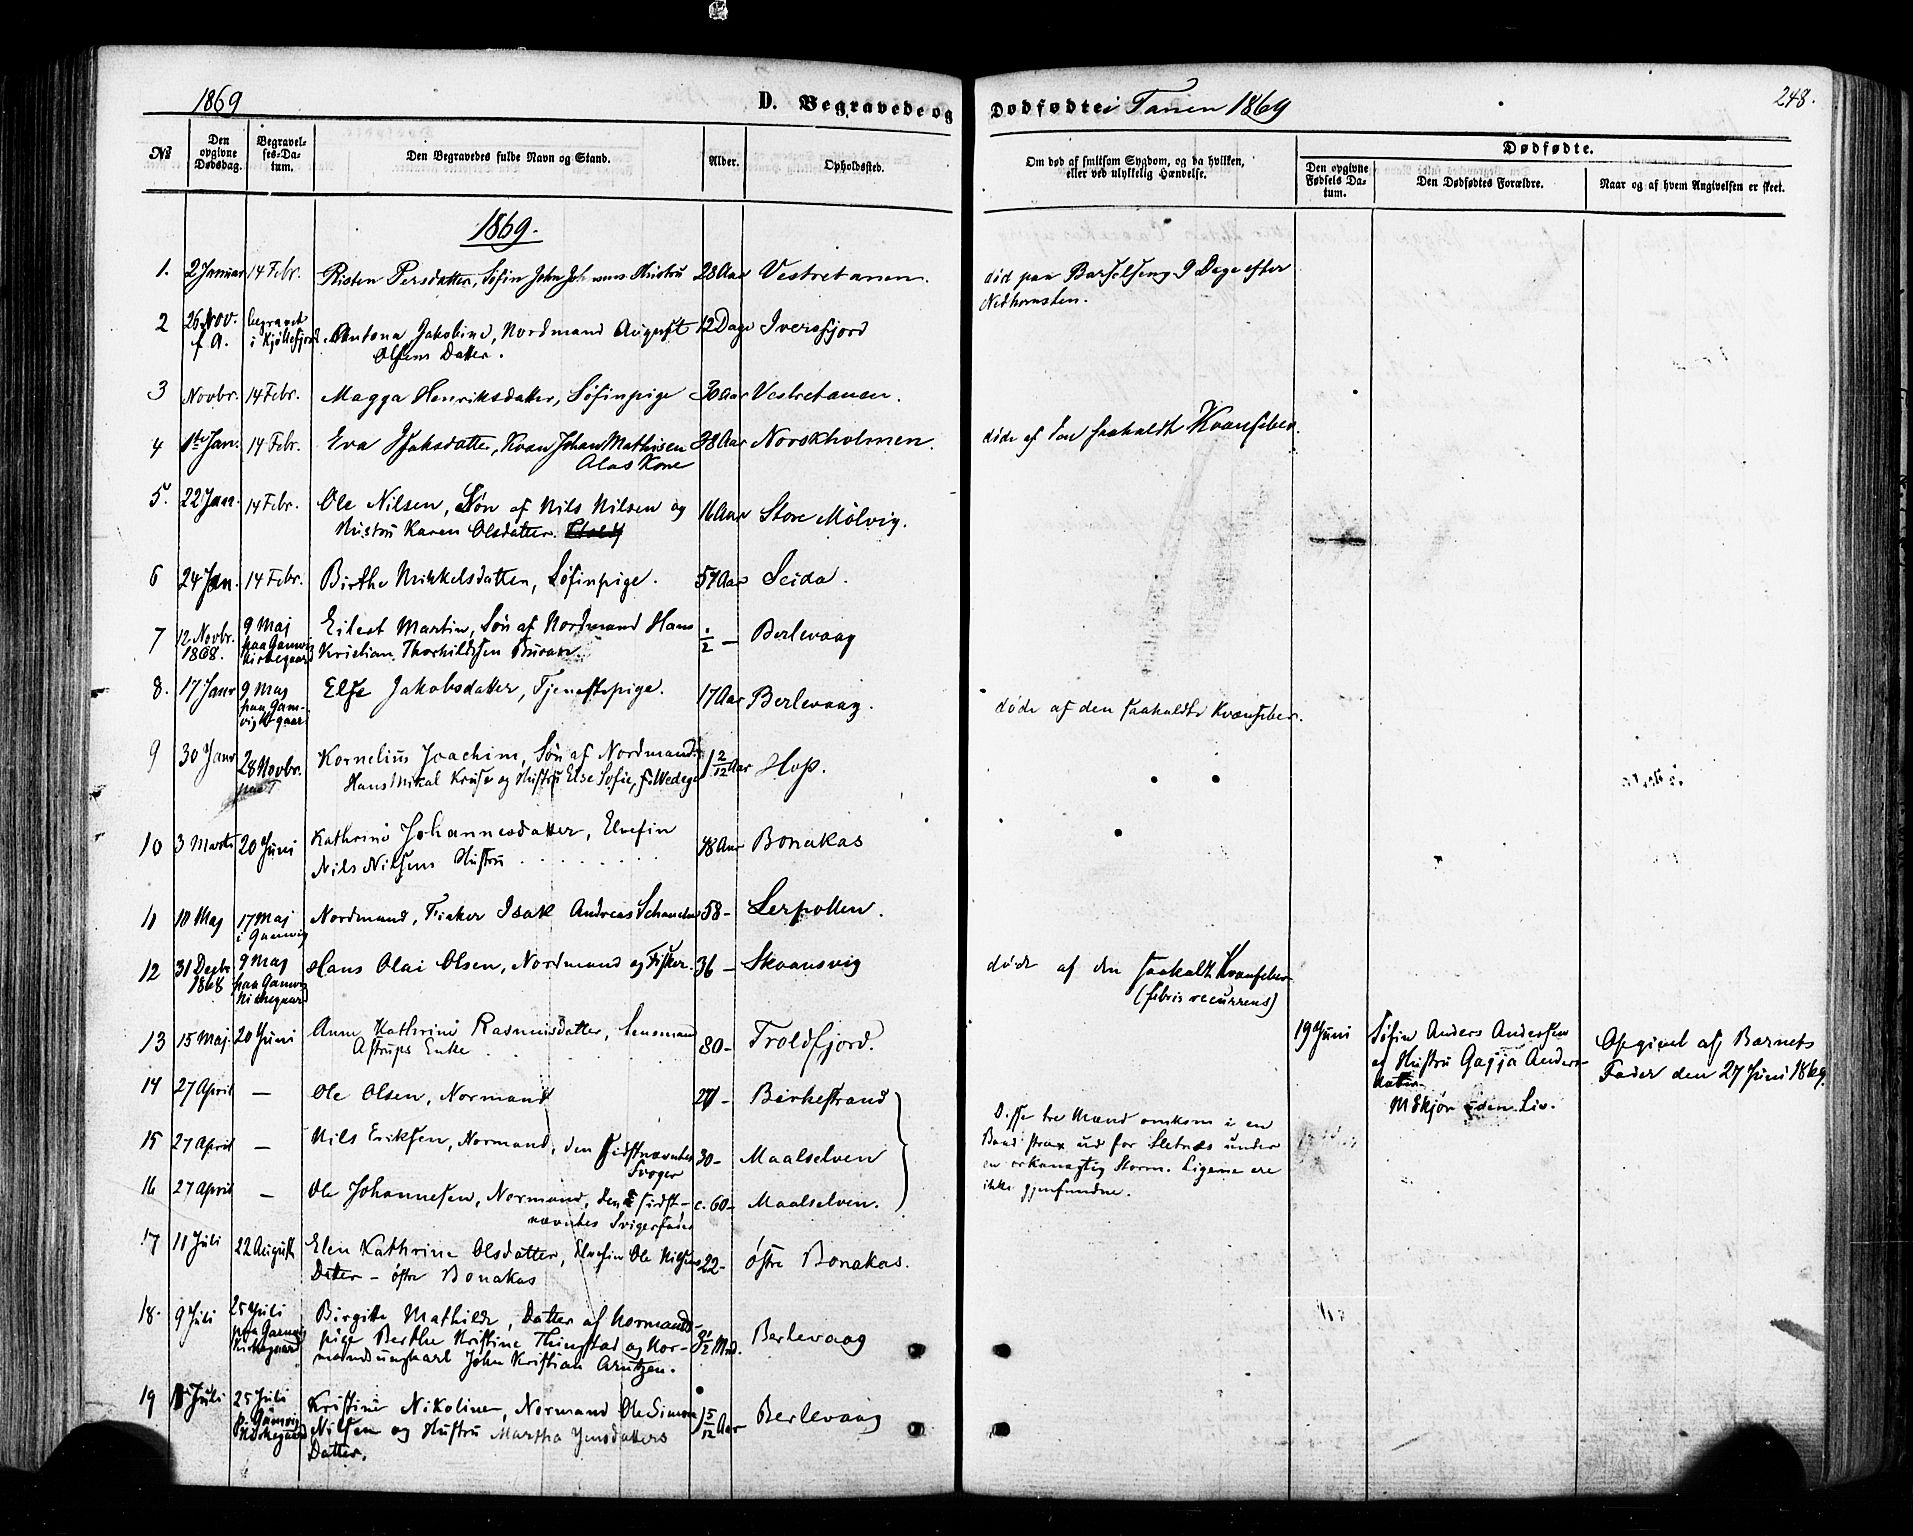 1869
D. Begravede og Dødfødte i Tanen 1869
248.
№
Den opgivne Dødsdag.
Begravelses-Datum.
Den Begravedes fulde Navn og Stand.
Alder.
Opholdssted.
Om død af smitsom Sygdom, og da hvilken, eller ved ulykkelig Hændelse.
Dødfødte.
Den opgivne Fødsels Datum.
Den Dødfødtes Forældre.
Naar og af hvem Angivelsen er skeet.
1869.
1. 2 Januar 14 Febr. Risten Persdatter, Søfin John Hustru 28 Aar Vestretanen.
død paa Barselseng 9 Dage efter
Nedkomsten.
2 26 Nov. begravet Antona Jakobine, Nordmand August 12 Dage Iversfjord
f. A. i Kjøllefjord Olsens Datter.
3 Novbr. 14 Febr. Magga Henriksdatter, Søfinpige 30 Aar Vestretanen.
4 1ste Jan. 14 Febr. Eva Isaksdatter, Kvæn Johan Mathisen 38 Aar Norskholmen.
Alas Kone
døde af den saakaldte Kvænfeber.
5. 22 Jan. 14 Febr. Ole Nilsen, Søn af Nils Nilsen og 16 Aar Store Molvig.
Hustru Karen Olsdatter.
6 24 Jan. 14 Febr. Birthe Mikkelsdatter, Søfinpige. 57 Aar Seida.
7 12 Novbr. 9 Maj Eilert Martin, Søn af Nordmand Hans 1/2 — Berlevaag
1868. paa Gamvig Kirkegaard Kristian Thorkildsen Buran.
8. 17 Janr 9 Maj Else Jakobsdatter, Tjenestepige. 17 Aar Berlevaag.
paa Gamvig Kgaard
døde af den saakaldte Kvænfeber.
9 30 Janr 28 Novbr. Kornelius Joachim, Søn af Nordmand 1 2/12 Aar Hop.
Hans Mikal Kruse og Hustru Else Sofie, f. Wedege
10 3 Marts 20 Juni Kathrine Johannesdatter, Elvefin 48 Aar Bonakas
Nils Nilsens Hustru
11 10 Maj 17 Maj Nordmand, Fisker Isak Andreas 58 - Lerpollen.
i Gamvig
12 31 Decbr 9 Maj Hans Olai Olsen, Nordmand og Fisker. 36 — Skaansvig
1868 paa Gamvig Kirkegaard
døde af den saakaldte Kvænfeber
(febris recurrens)
13 15 Maj 20 Juni Anne Kathrine Rasmusdatter, Lensmand 80 - Troldfjord.
Astrups Enke
19 Juni Søfin Anders Andersen
og Hustru Gagja Andersdatter
M Skjøn uden Liv.
Opgivet af Barnets
Fader den 27 Juni 1869.
14 27 April — Ole Olsen, Normand 27 - Birkestrand
15 27 April — Nils Eriksen, Normand, den sidstnævntes 30 - Maalselven
Svoger
16 27 April — Ole Johannesen, Normand, den sidst- c. 60 - Maalselven.
nævntes Svigerfader
Disse tre Mænd omkom i en
Baad strax ud for Sletnæs under
en orkanagtig Storm. Ligene ere
ikke gjenfundne.
17 11 Juli 22 August Elen Kathrine Olsdatter, Elvefin Ole Nilsens 22 - østre Bonakas.
Datter - østre Bonakas
18. 9 Juli 25 Juli Birgitte Mathilde, Datter af Normands- 3 1/2 Md. Berlevaag
paa Gamvig Kirkegaard pige Berthe Kristine Thingstad og Nor-
mandsungkarl John Kristian Arntzen.
19 Juli 25 Juli Kristine Nikoline, Normand Ole Simon 1 5/12 Aar Berlevaag
p. Gamvig Kirkegaard Nilsen og Hustru Martha Jensdatters
Datter.